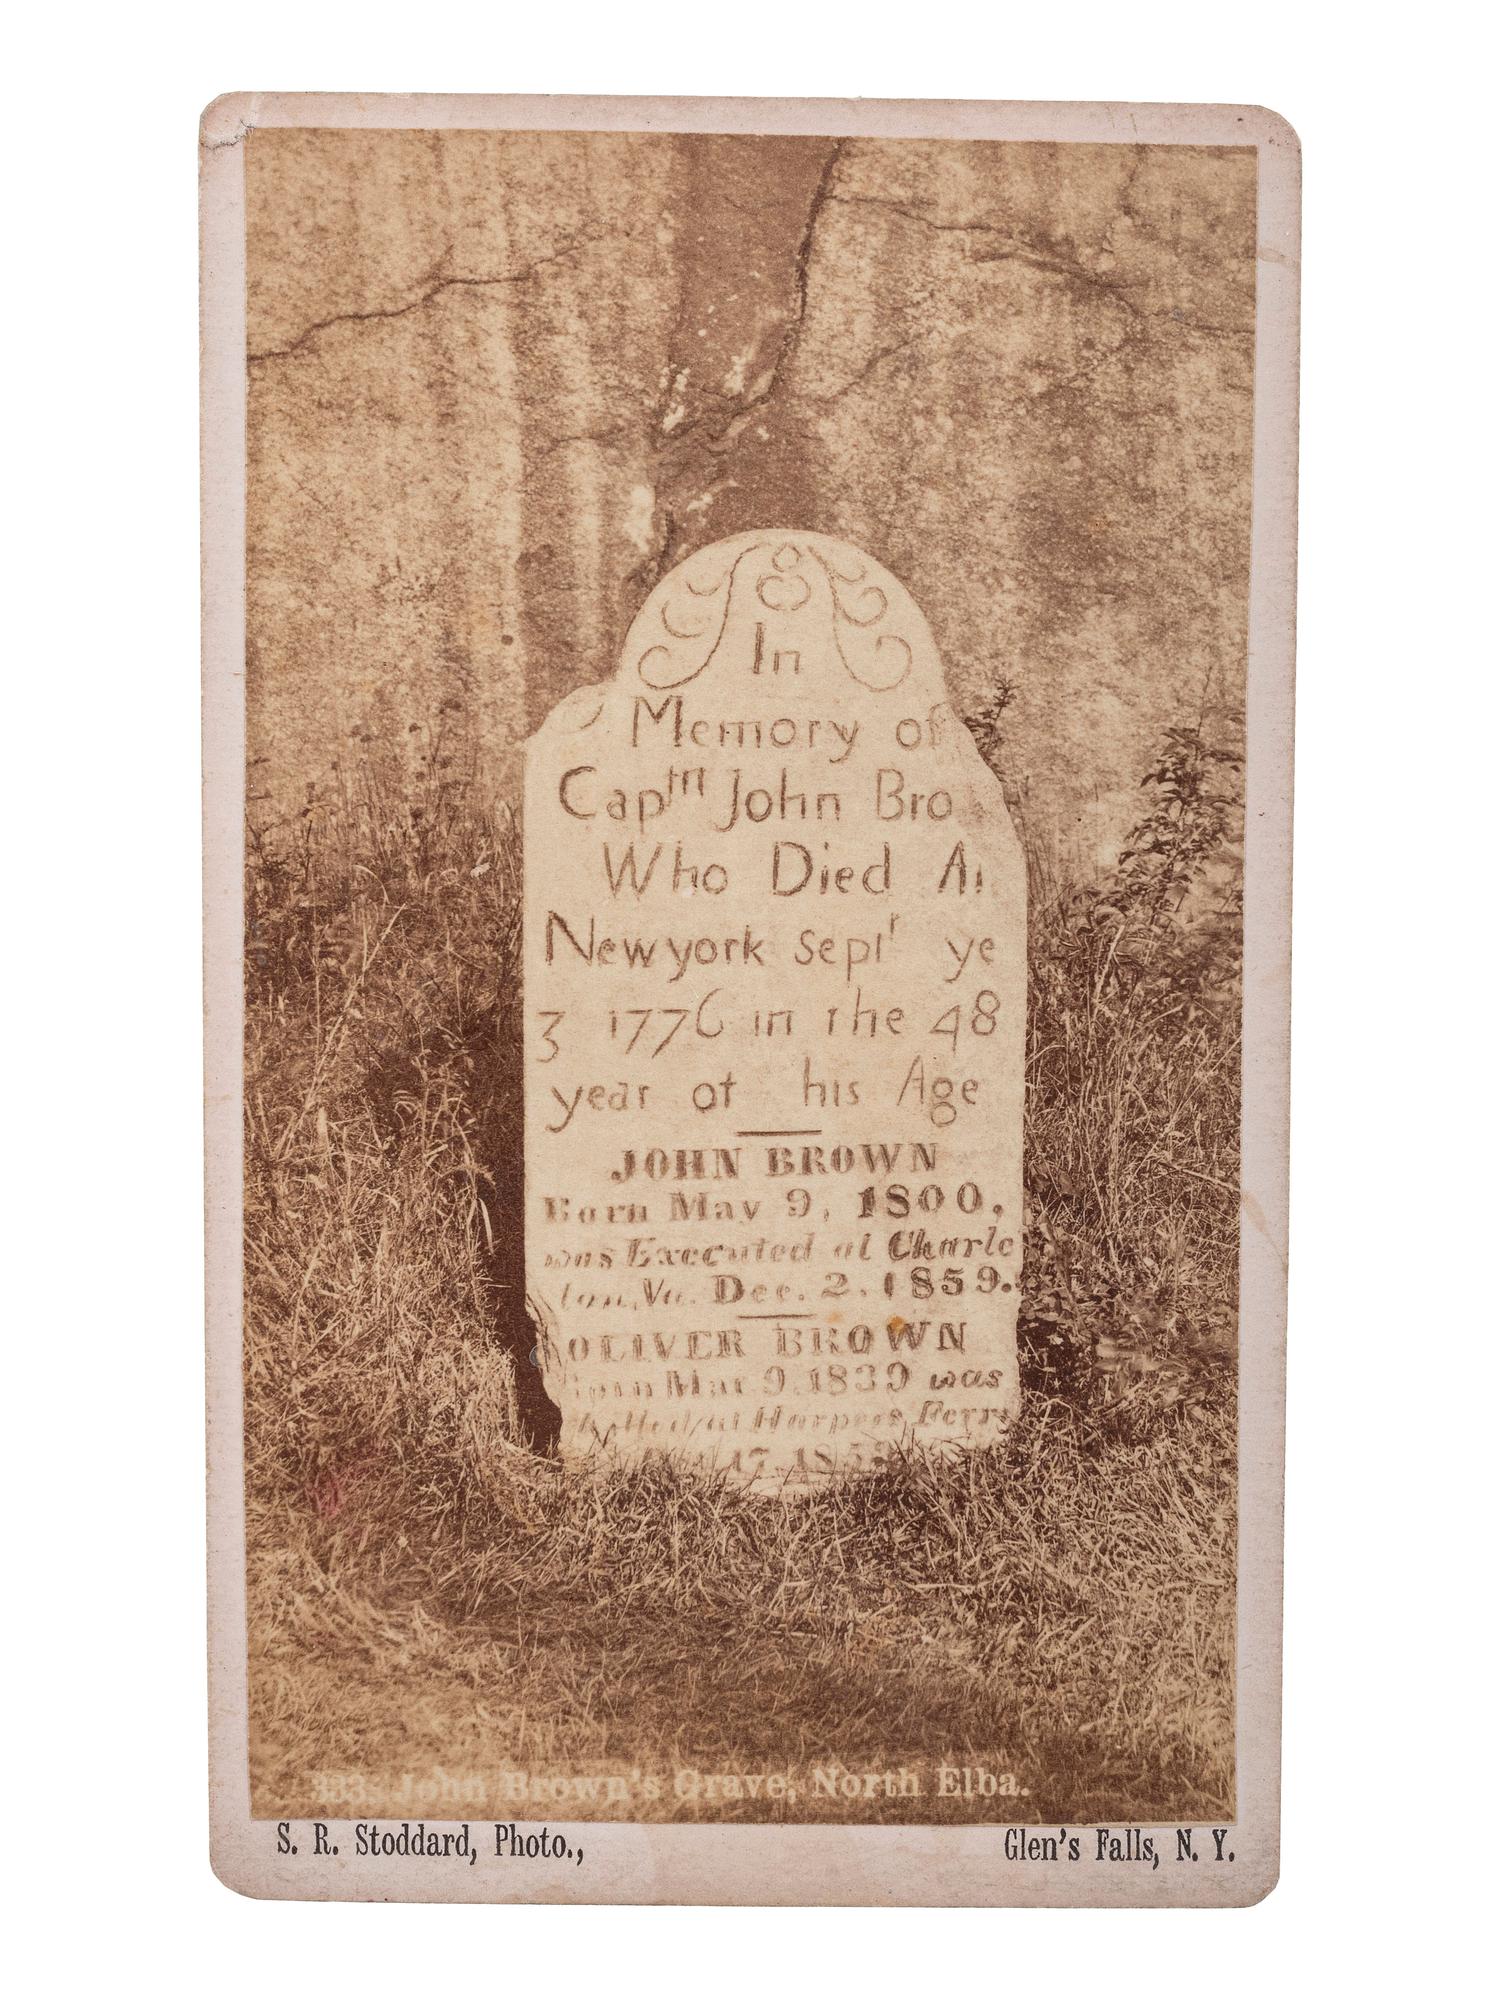 In
Memory of
Captn John Bro
Who Died At
Newyork Septr ye
3 1776 in the 48
year of his Age
JOHN BROWN
Born May 9, 1800,
was Executed at Charle
ton, Va. Dec. 2, 1859.
OLIVER BROWN
Born Mar. 9, 1839 was
Killed at Harpers Ferry
17 1859
333. John Brown's Grave, North Elba.
S. R. Stoddard, Photo., Glen's Falls, N. Y.